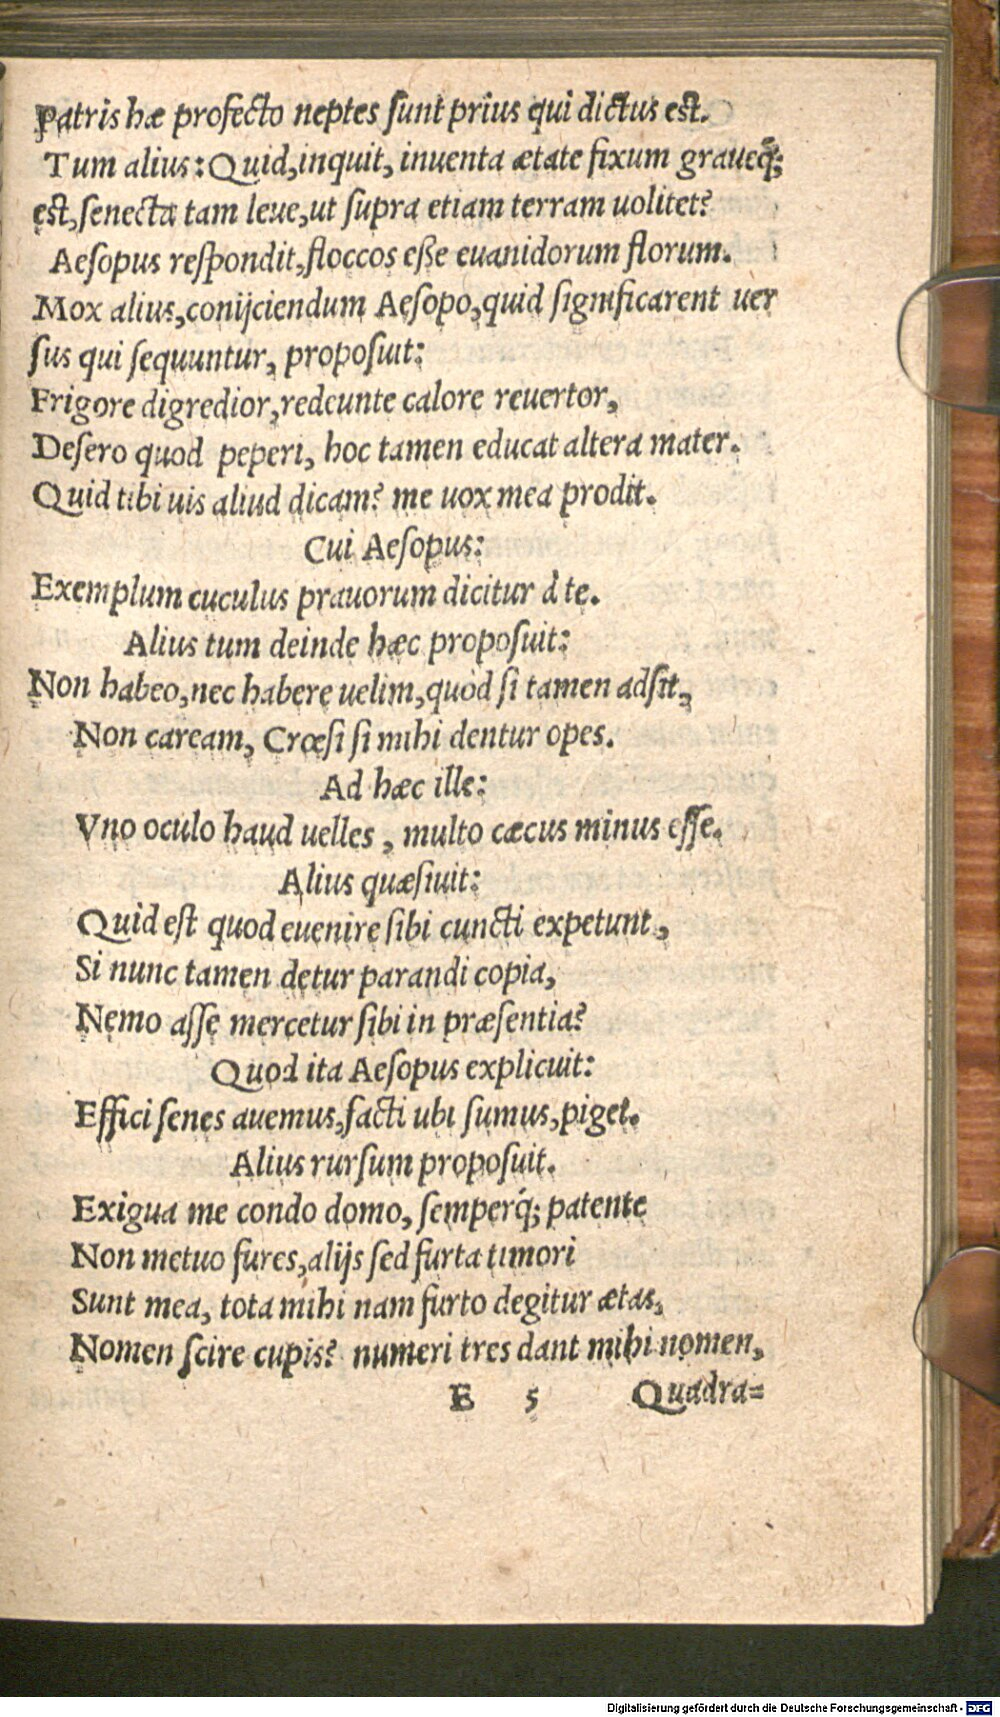 Patris hæ profecto neptes ſunt prius qui dictus est.
Tum alius: Quid, inquit, inuenta ætate fixum graueq́;
est, ſenecta tam leue, ut ſupra etiam terram uolitet?
Aeſopus reſpondit, floccos eſſe euanidorum florum.
Mox alius, conijciendum Aeſopo, quid ſignificarent uer
ſus qui ſequuntur, propoſuit:
Frigore digredior, redeunte calore reuertor,
Deſero quod peperi, hoc tamen educat altera mater.
Quid tibi uis aliud dicam? me uox mea prodit.
Cui Aeſopus:
Exemplum cuculus prauorum dicitur à te.
Alius tum deinde hæc propoſuit:
Non habeo, nec habere uelim, quod ſi tamen adſit,
Non caream, Crœſi ſi mihi dentur opes.
Ad hæc ille:
Vno oculo haud uelles, multo cæcus minus eſſe.
Alius quæſiuit:
Quid eſt quod euenire ſibi cuncti expetunt,
Si nunc tamen detur parandi copia,
Nemo aſſe mercetur ſibi in præſentia?
Quod ita Aeſopus explicuit:
Effici ſenes auemus, facti ubi ſumus, piget.
Alius rurſum propoſuit.
Exigua me condo domo, ſemperq́; patente
Non metuo fures, alijs ſed furta timori
Sunt mea, tota mihi nam furto degitur ætas,
Nomen ſcire cupis? numeri tres dant mihi nomen,
E 5 Quadra=
Digitalisierung gefördert durch die Deutsche Forschungsgemeinschaft - DFG